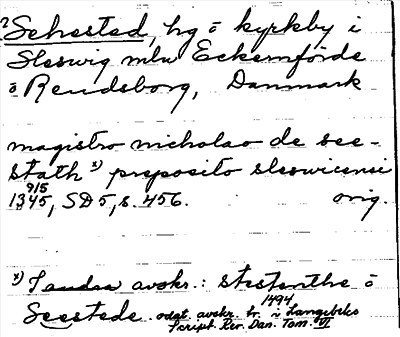 ?Sehested, hg ö kyrkby i
Sleswig mlw Eckernförde
ö Rendsborg, Danmark
magistro nicholao de see-
stath x) preposito sleswicensi
9/5
1345, SD 5, s. 456. orig.
x) Tandra avskr.: stestenthe ö
Seestede. odat. avskr. tr. 1494 i Langebeks
Script. Rer. Dan. Tom. VI